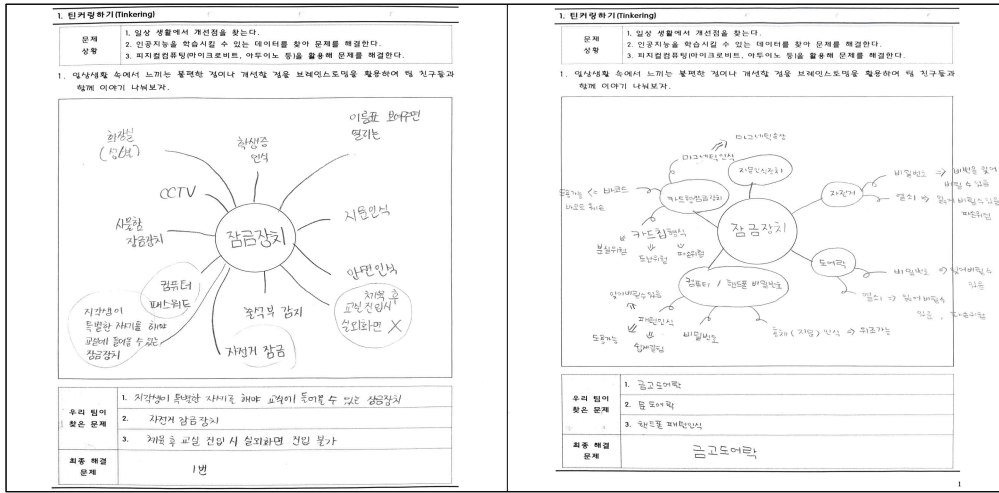 1. 틴커링하기(Tinkering)
문제
상황
1. 일상 생활에서 개선점을 찾는다.
2. 인공지능을 학습시킬 수 있는 데이터를 찾아 문제를 해결한다.
3. 피지컬컴퓨팅(마이크로비트, 아두이노 등)을 활용해 문제를 해결한다.
1. 일상생활 속에서 느끼는 불편한 점이나 개선할 점을 브레인스토밍을 활용하여 팀 친구들과
함께 이야기 나눠보자.
이름표 보여주면
열리는
화장실
학생증
인식
CCTV
지문인식
사물함
잠금장치
잠금장치
안면인식
컴퓨터
패스워드
체육 후
교실 진입시
실외화면 X
지각생이
특별한 자세를 해야
교실에 들어올 수 있는
잠금장치
움직임 감지
자전거 잠금
우리 팀이
찾은 문제
1. 지각생이 특별한 자세를 해야 교실에 들어올 수 있는 잠금장치
2. 자전거 잠금장치
3. 체육 후 교실 진입 시 실외화면 진입 불가
최종 해결
문제
1번
1. 틴커링하기(Tinkering)
문제
상황
1. 일상 생활에서 개선점을 찾는다.
2. 인공지능을 학습시킬 수 있는 데이터를 찾아 문제를 해결한다.
3. 피지컬컴퓨팅(마이크로비트, 아두이노 등)을 활용해 문제를 해결한다.
1. 일상생활 속에서 느끼는 불편한 점이나 개선할 점을 브레인스토밍을 활용하여 팀 친구들과
함께 이야기 나눠보자.
마그네틱손상
마그네틱인식
지문인식장치
도용가능 <= 바코드
카드형잠금장치
자전거
비밀번호 => 비번을 잊어
버릴 수 있음
열쇠 => 잃어버릴수있음
파손위험
카드칩형식
분실위험
도난위험
파손위험
잠금장치
도어락
비밀번호 => 잊어버릴수
있음
열쇠 => 잃어버릴수
있음, 파손위험
컴퓨터 / 핸드폰 비밀번호
잊어버릴수있음
패턴인식
도용가능
비밀번호
홍채(지문)인식 => 위조가능
우리 팀이
찾은 문제
1. 금고도어락
2. 문 도어락
3. 핸드폰 패턴인식
최종 해결
문제
금고도어락
1